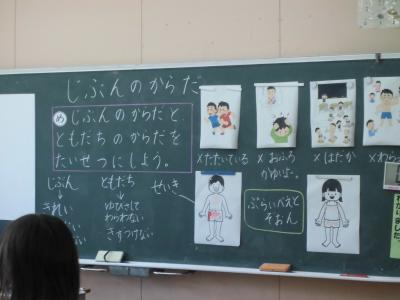 じぶんのからだ
め じぶんのからだと、
ともだちのからだを
たいせつにしよう。
×たたいている
×おふろ
かゆいよー。
×はだか
×わら
じぶん
きれい
ともだち
ゆびさして
わらわない
きずつけない
せいき
ぷらいべえと
ぞおん